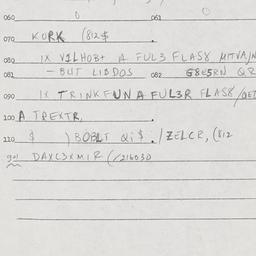 060 061
070 KORK (812$
080 1X V1LHOB+ A FUL3 FLAS8
081 - BUT LIBDOS 082 G8E5RN
090 1X TRINKFUNA FUL3R FLAS8/
100 A TREXTR,
110 $ ) BOBLT Qi$. /ZELCR, (812
DAXC3XMIR (/216030